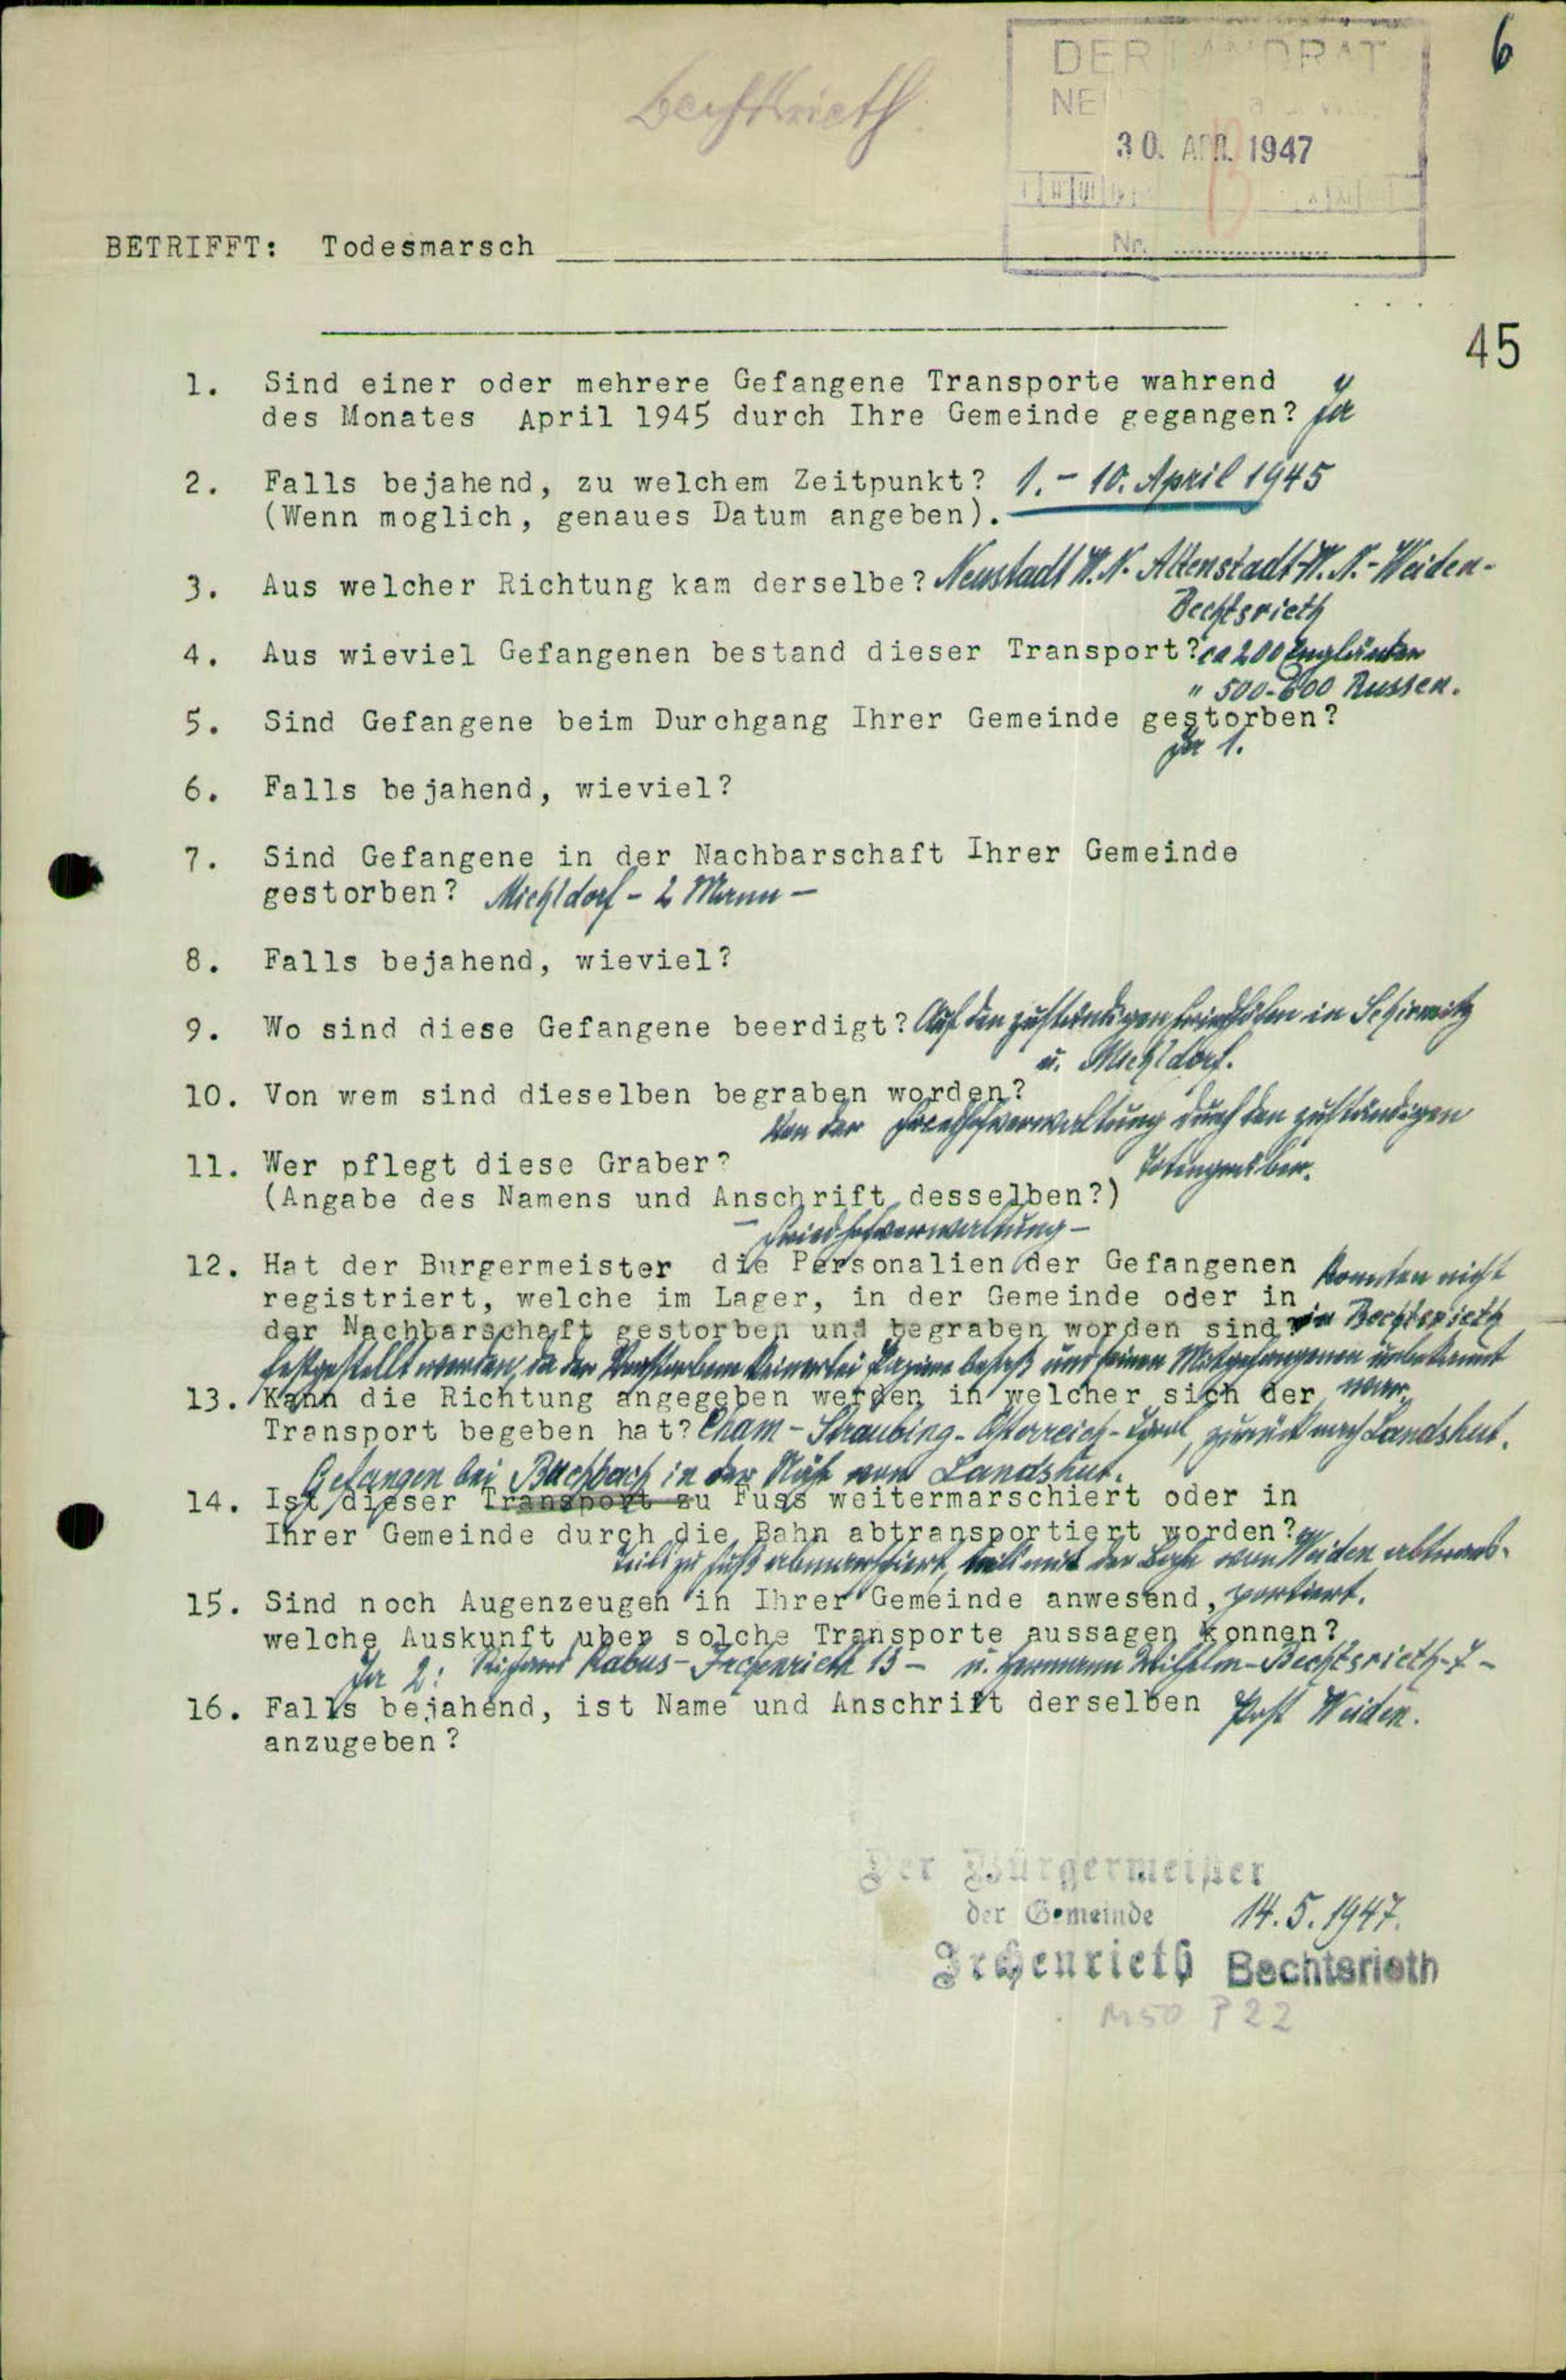 6
Bechtsrieth
DER LANDRAT
NE
30. APR. 1947
Nr.
BETRIFFT: Todesmarsch
45
1. Sind einer oder mehrere Gefangene Transporte wahrend
des Monates April 1945 durch Ihre Gemeinde gegangen? Ja
2. Falls bejahend, zu welchem Zeitpunkt? 1. - 10. April 1945
(Wenn moglich, genaues Datum angeben).
3. Aus welcher Richtung kam derselbe? Neustadt W.N. Altenstadt-W.N.-Weiden-
Bechtsrieth
4. Aus wieviel Gefangenen bestand dieser Transport? ca 200 Engländer
" 500-600 Russen.
5. Sind Gefangene beim Durchgang Ihrer Gemeinde gestorben?
Ja 1.
6. Falls bejahend, wieviel?
7. Sind Gefangene in der Nachbarschaft Ihrer Gemeinde
gestorben? Michldorf - 2 Mann -
8. Falls bejahend, wieviel?
9. Wo sind diese Gefangene beerdigt? Auf den zuständigen Friedhöfen in Schirmitz
u. Michldorf.
10. Von wem sind dieselben begraben worden?
Von der Friedhofverwaltung durch den zuständigen
11. Wer pflegt diese Graber? Totengräber.
(Angabe des Namens und Anschrift desselben?)
- Friedhofverwaltung -
12. Hat der Burgermeister die Personalien der Gefangenen konnten nicht
registriert, welche im Lager, in der Gemeinde oder in
der Nachbarschaft gestorben und begraben worden sind? in Bechtsrieth
festgestellt werden, da der Verstorbene keinerlei Papiere besaß und seinen Mitgefangenen unbekannt
13. Kann die Richtung angegeben werden in welcher sich der war.
Transport begeben hat? Cham - Straubing - Österreich - Tirol, zurück nach Landshut.
Gefangen bei Buchbach in der Nähe von Landshut.
14. Ist dieser Transport zu Fuss weitermarschiert oder in
Ihrer Gemeinde durch die Bahn abtransportiert worden?
teils zu Fuß abmarschiert, teils mit der Bahn von Weiden abtrans-
15. Sind noch Augenzeugen in Ihrer Gemeinde anwesend, portiert.
welche Auskunft uber solche Transporte aussagen konnen?
Ja 2: Richard Rabus - Irchenrieth 13 - u. Hermann Wilhelm - Bechtsrieth - 7 -
16. Falls bejahend, ist Name und Anschrift derselben Post Weiden.
anzugeben?
Der Bürgermeister
der Gemeinde 14.5.1947.
Irchenrieth Bechtsrieth
M50 P22